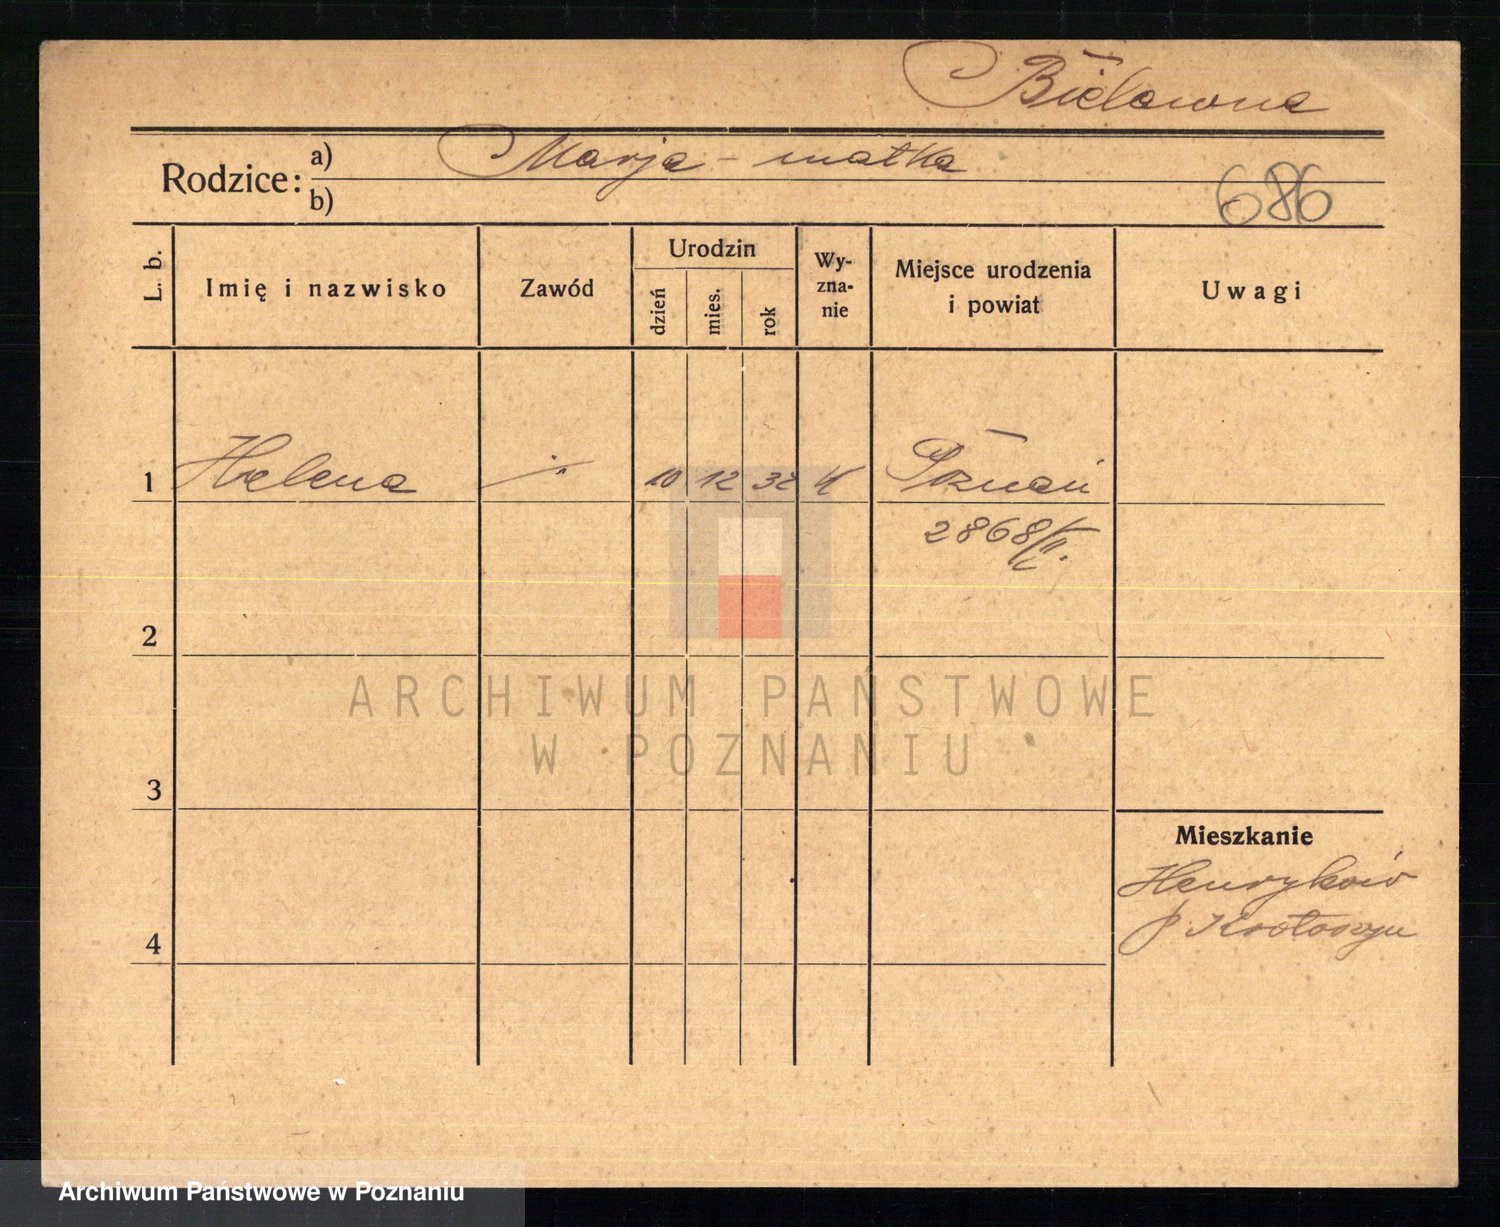 Bielawna
Rodzice:
a) Marja - matka
b)
686
L. b.
Imię i nazwisko
Zawód
Urodzin
dzień
mies.
rok
Wy-
zna-
nie
Miejsce urodzenia
i powiat
Uwagi
1 Helena ·/. 10 12 32 k Poznań
2868/II.
2
3
4
Mieszkanie
Henryków
p Krotoszyn
ARCHIWUM PAŃSTWOWE
W POZNANIU
Archiwum Państwowe w Poznaniu